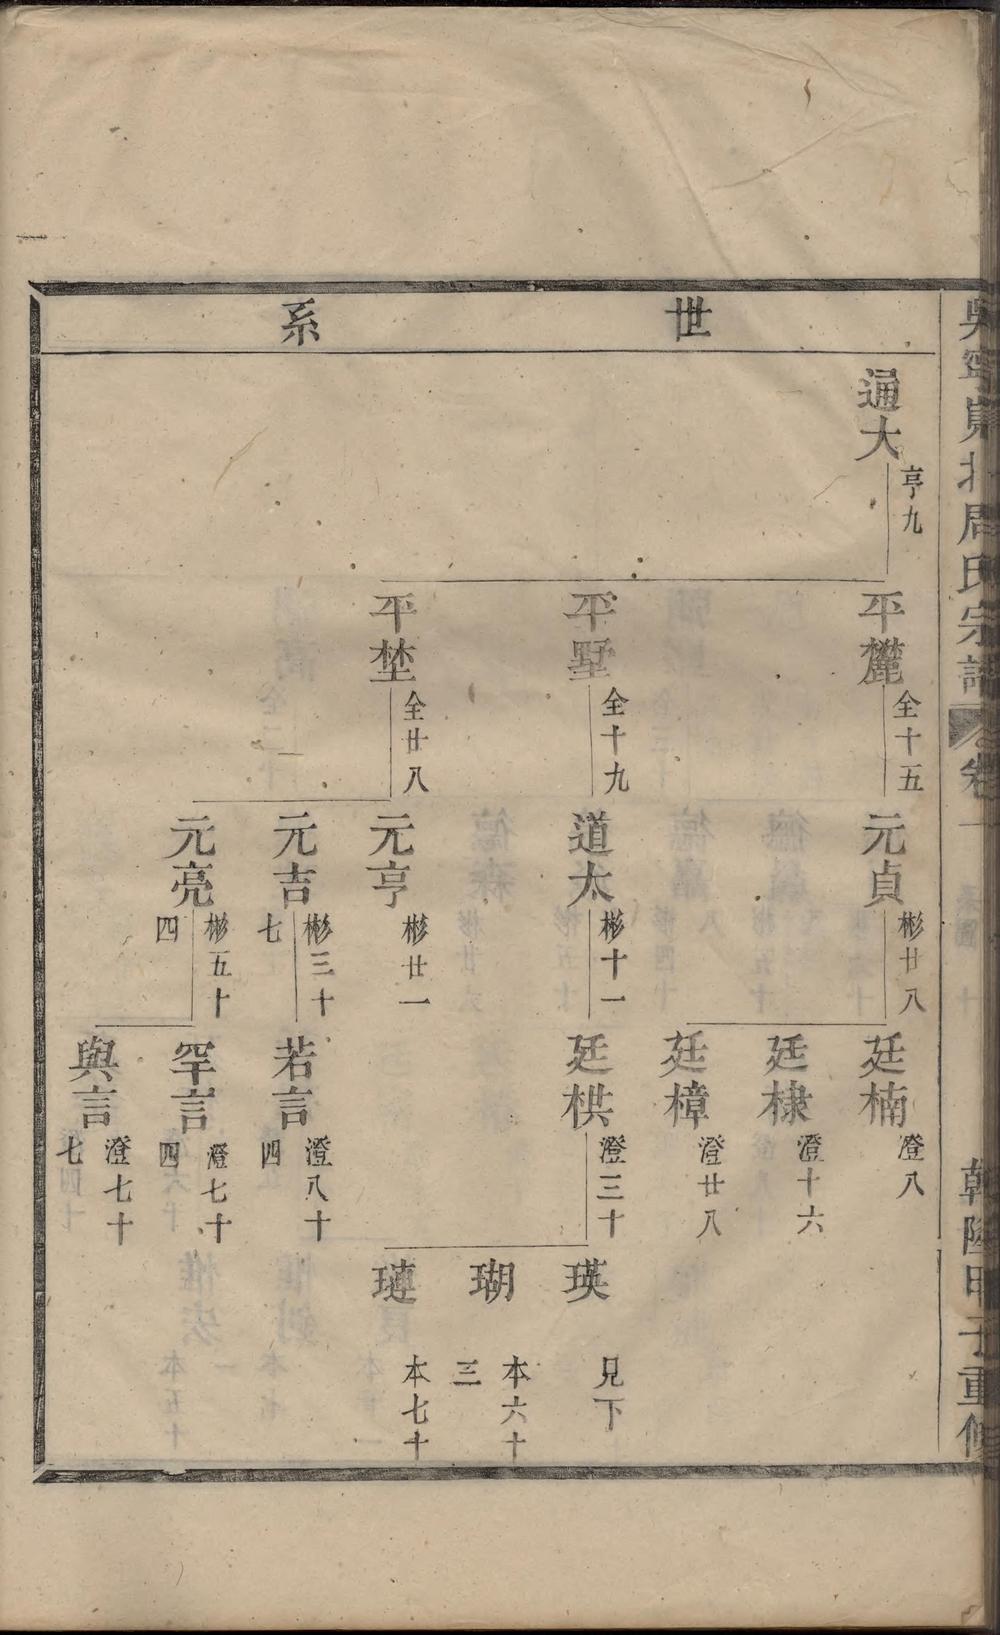 吳寧東北周氏宗譜
卷一
系圖
十
乾隆甲子重修
世系
通大 亨九
平麓 全十五
平墅 全十九
平埜 全廿八
元貞 彬廿八
道太 彬十一
元亨 彬廿一
元吉 彬三十七
元亮 彬五十四
廷楠 澄八
廷棣 澄十六
廷樟 澄廿八
廷栱 澄三十
若言 澄八十四
罕言 澄七十四
與言 澄七十七
瑛 見下
瑚 本六十三
璉 本七十